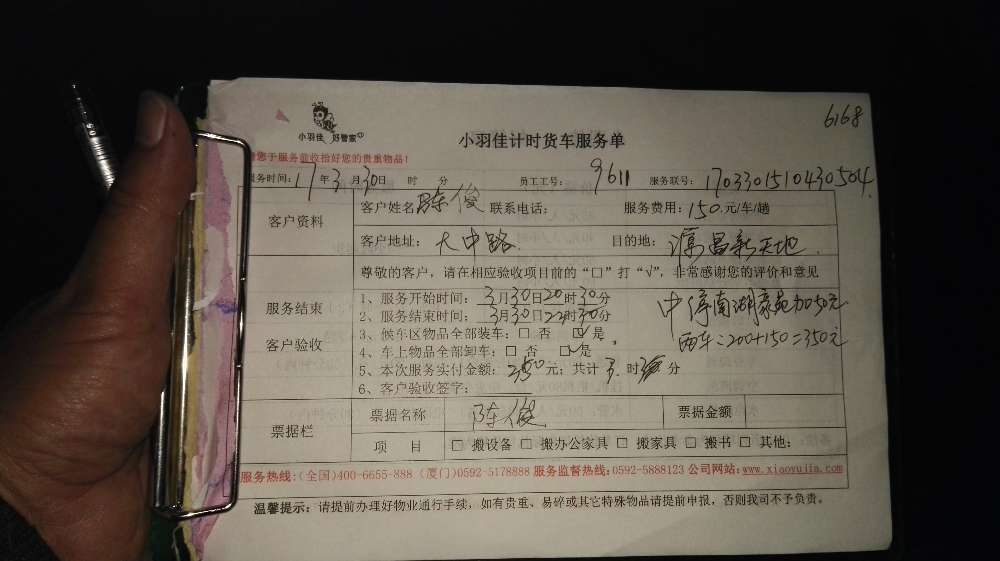 6168
小羽佳 好管家
小羽佳计时货车服务单
请您于服务前收拾好您的贵重物品!
服务时间: 17年3月30日 时 分 员工工号: 9611 服务联号: 1703301510430504
客户资料
客户姓名 陈俊 联系电话: 服务费用: 150.元/车/趟
客户地址: 大中路. 目的地: 昌新天地
尊敬的客户,请在相应验收项目前的“□”打“√”,非常感谢您的评价和意见
服务结束
客户验收
1、服务开始时间: 3月30日20时30分
2、服务结束时间: 3月30日22时30分
3、候车区物品全部装车: □ 否 ☑是。
4、车上物品全部卸车: □ 否 ☑是
5、本次服务实付金额: 元; 共计 3. 时 分
6、客户验收签字:
中停南湖豪苑加50元
两车:200+150=350元
票据栏
票据名称 陈俊 票据金额
项 目 □ 搬设备 □ 搬办公家具 □ 搬家具 □ 搬书 □ 其他:
服务热线:(全国)400-6655-888 (厦门)0592-5178888 服务监督热线:0592-5888123 公司网站:www.xiaoyujia.com
温馨提示: 请提前办理好物业通行手续,如有贵重、易碎或其它特殊物品请提前申报,否则我司不予负责。